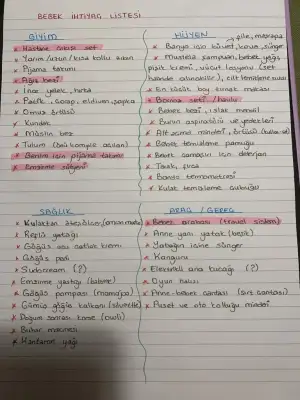 BEBEK İHTİYAÇ LİSTESİ
GİYİM
* Hastane çıkışı set
* Yarım / uzun / kısa kollu zıbın
* Pijama takımı
* Ağız bezi
* İnce yelek, hırka
* Patik, çorap, eldiven, şapka
* Omuz örtüsü
* Kundak
* Müslin bez
* Tulum
* Benim için pijama takımı
* Emzirme sütyeni
HİJYEN
file, maşrapa
* Banyo için küvet, kova, sünger
* Mustela şampuan, bebek yağı
pişik kremi, vücut losyonu (set
halinde alınabilir), cilt temizleme suyu
* En küçük boy tırnak makası
* Bornoz seti / havlu
* Bebek bezi, ıslak mendil
* Burun aspiratörü ve yedekleri
* Alt açma minderi, örtüsü
* Bebek temizleme pamuğu
* Bebek çamaşırı için deterjan
* Tarak, fırça
* Banyo termometresi
* Kulak temizleme çubuğu
SAĞLIK
* Kulaktan ateş ölçer
* Reflü yatağı
* Göğüs ucu çatlak kremi
* Göğüs pedi
* Sudocream (?)
* Emzirme yastığı
* Göğüs pompası (mamajoo)
* Gümüş göğüs kalkanı
* Doğum sonrası korse
* Buhar makinesi
* Hantane yağı
ARAÇ / GEREÇ
* Bebek arabası (travel sistem)
* Anne yanı yatak (beşik)
* Yatağın içine sünger
* Kanguru
* Elektrikli ana kucağı (?)
* Oyun halısı
* Anne-bebek çantası (sırt çantası)
* Puset ve oto koltuğu minderi